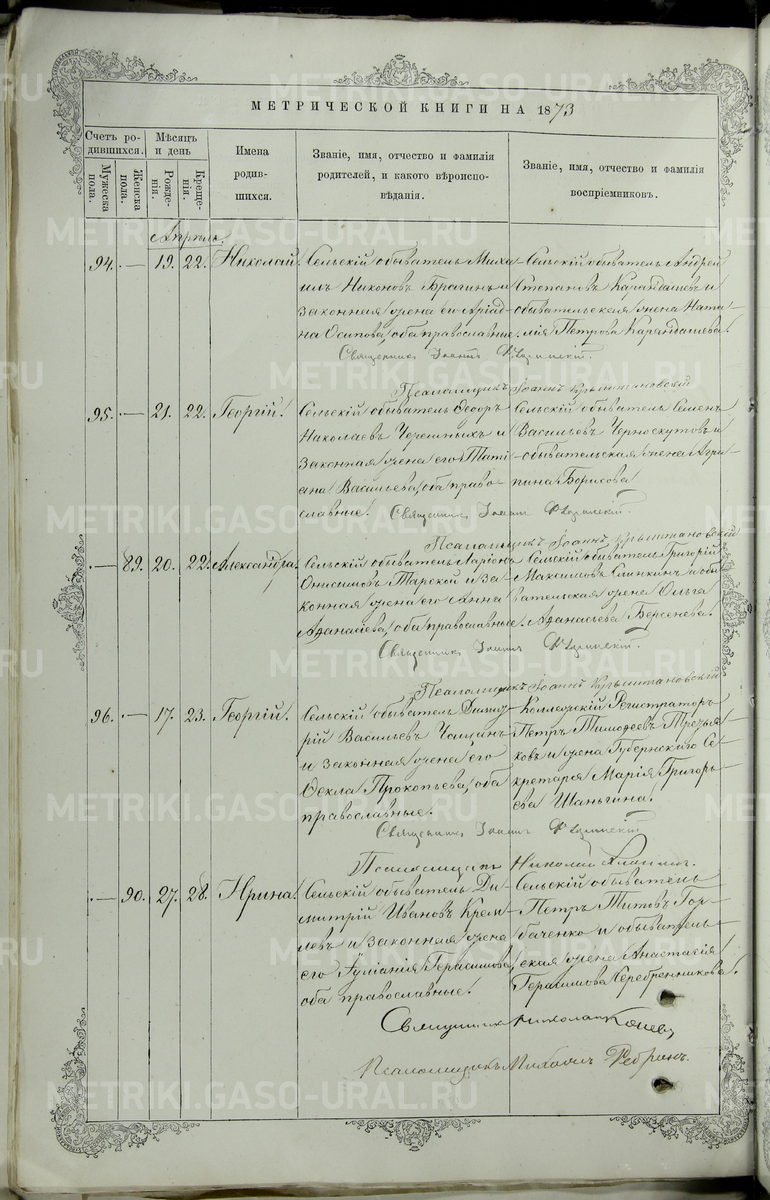 МЕТРИЧЕСКОЙ КНИГИ НА 1873
Счетъ родившихся.
Мужеска пола.
Женска пола.
Мѣсяцъ и день
Рожденія.
Крещенія.
Имена родившихся.
Званіе, имя, отчество и фамилія родителей, и какого вѣроисповѣданія.
Званіе, имя, отчество и фамилія воспріемниковъ.
Апрѣль.
94. — 19. 22. Николай.
Сельскій обыватель Миха-
илъ Никоновъ Брагинъ и
законная жена его Аріад-
на Осипова, оба православные.
Сельскій обыватель Андрей
Степановъ Карандашевъ и
обывательская жена Ната-
лія Петрова Карандашева.
Священникъ Іоаннъ
Псаломщикъ Іоаннъ
95. — 21. 22. Георгій.
Сельскій обыватель Ѳедоръ
Николаевъ Черемныхъ и
законная жена его Тати-
ана Васильева, оба право-
славные.
Сельскій обыватель Семенъ
Васильевъ Черноскутовъ и
обывательская жена Агри-
пина Борисова
Священникъ Іоаннъ
Псаломщикъ Іоаннъ
— 89. 20. 22. Александра.
Сельскій обыватель Ларіонъ
Онисимовъ Тарской и за-
конная жена его Анна
Аѳанасіева, оба православные.
Сельскій обыватель Григорій
Максимовъ и обы-
вательская жена Ольга
Аѳанасьева Берсенева.
Священникъ Іоаннъ
Псаломщикъ Іоаннъ
96. — 17. 23. Георгій.
Сельскій обыватель Димит-
рій Васильевъ
и законная жена его
Ѳекла Прокопьева, оба
православные.
Коллежскій Регистраторъ
Петръ Тимофеевъ Третья-
ковъ и жена Губернскаго Се-
кретаря Марія Григорь-
ева Шаньгина.
Священникъ Іоаннъ
Псаломщикъ Николай
— 90. 27. 28. Ирина.
Сельскій обыватель Ди-
митрій Ивановъ Крем-
левъ и законная жена
его Іуліанія Герасимова,
оба православные.
Сельскій обыватель
Петръ Титовъ Гор-
баченко и обыватель-
ская жена Анастасія
Герасимова Серебренникова.
Священникъ Николай
Псаломщикъ Михаилъ Ребринъ.
METRIKI.GASO-URAL.RU